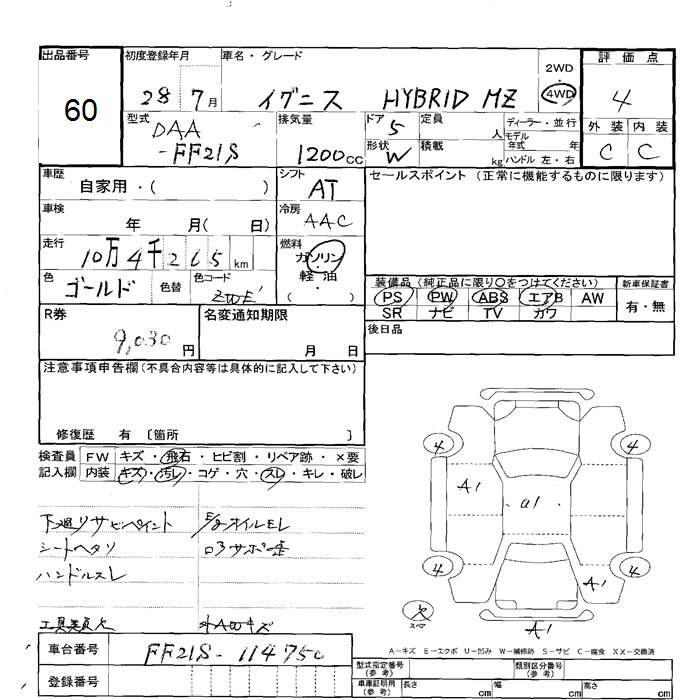 出品番号
60
初度登録年月
28 7月
車名・グレード
イグニス HYBRID MZ
2WD
・
4WD
評価点
4
外装 内装
C C
型式
DAA
-FF21S
排気量
1200cc
ドア 5
形状 W
定員 人
積載 kg
ディーラー・並行
モデル
年式 年
ハンドル 左・右
車歴
自家用・( )
シフト
AT
セールスポイント (正常に機能するものに限ります)
車検
年 月( 日)
冷房
AAC
走行
10万4千265km
燃料
ガソリン
軽・油
( ・ )
色
ゴールド
色替
色コード
装備品(純正品に限り○をつけてください)
PS PW ABS エアB AW
SR ナビ TV カワ
新車保証書
有・無
後日品
R券
9,030円
名変通知期限
月 日
注意事項申告欄(不具合内容等は具体的に記入して下さい)
修復歴 有 〔箇所 〕
検査員
記入欄
FW キズ・飛石・ヒビ割・リペア跡・×要
内装 キズ・汚レ・コゲ・穴・スレ・キレ・破レ
下廻リサビペイント
シートヘタリ
ハンドルスレ
工具差欠
外AWキズ
4
4
A1
a1
4
4
A1
欠
スペア
A1
A-キズ E-エクボ U-凹み W-補修跡 S-サビ C-腐食 XX-交換済
車台番号
FF21S-114750
登録番号
型式指定番号
(参考)
類別区分番号
(参考)
車庫証明用
(参考)
長さ cm
幅 cm
高さ cm